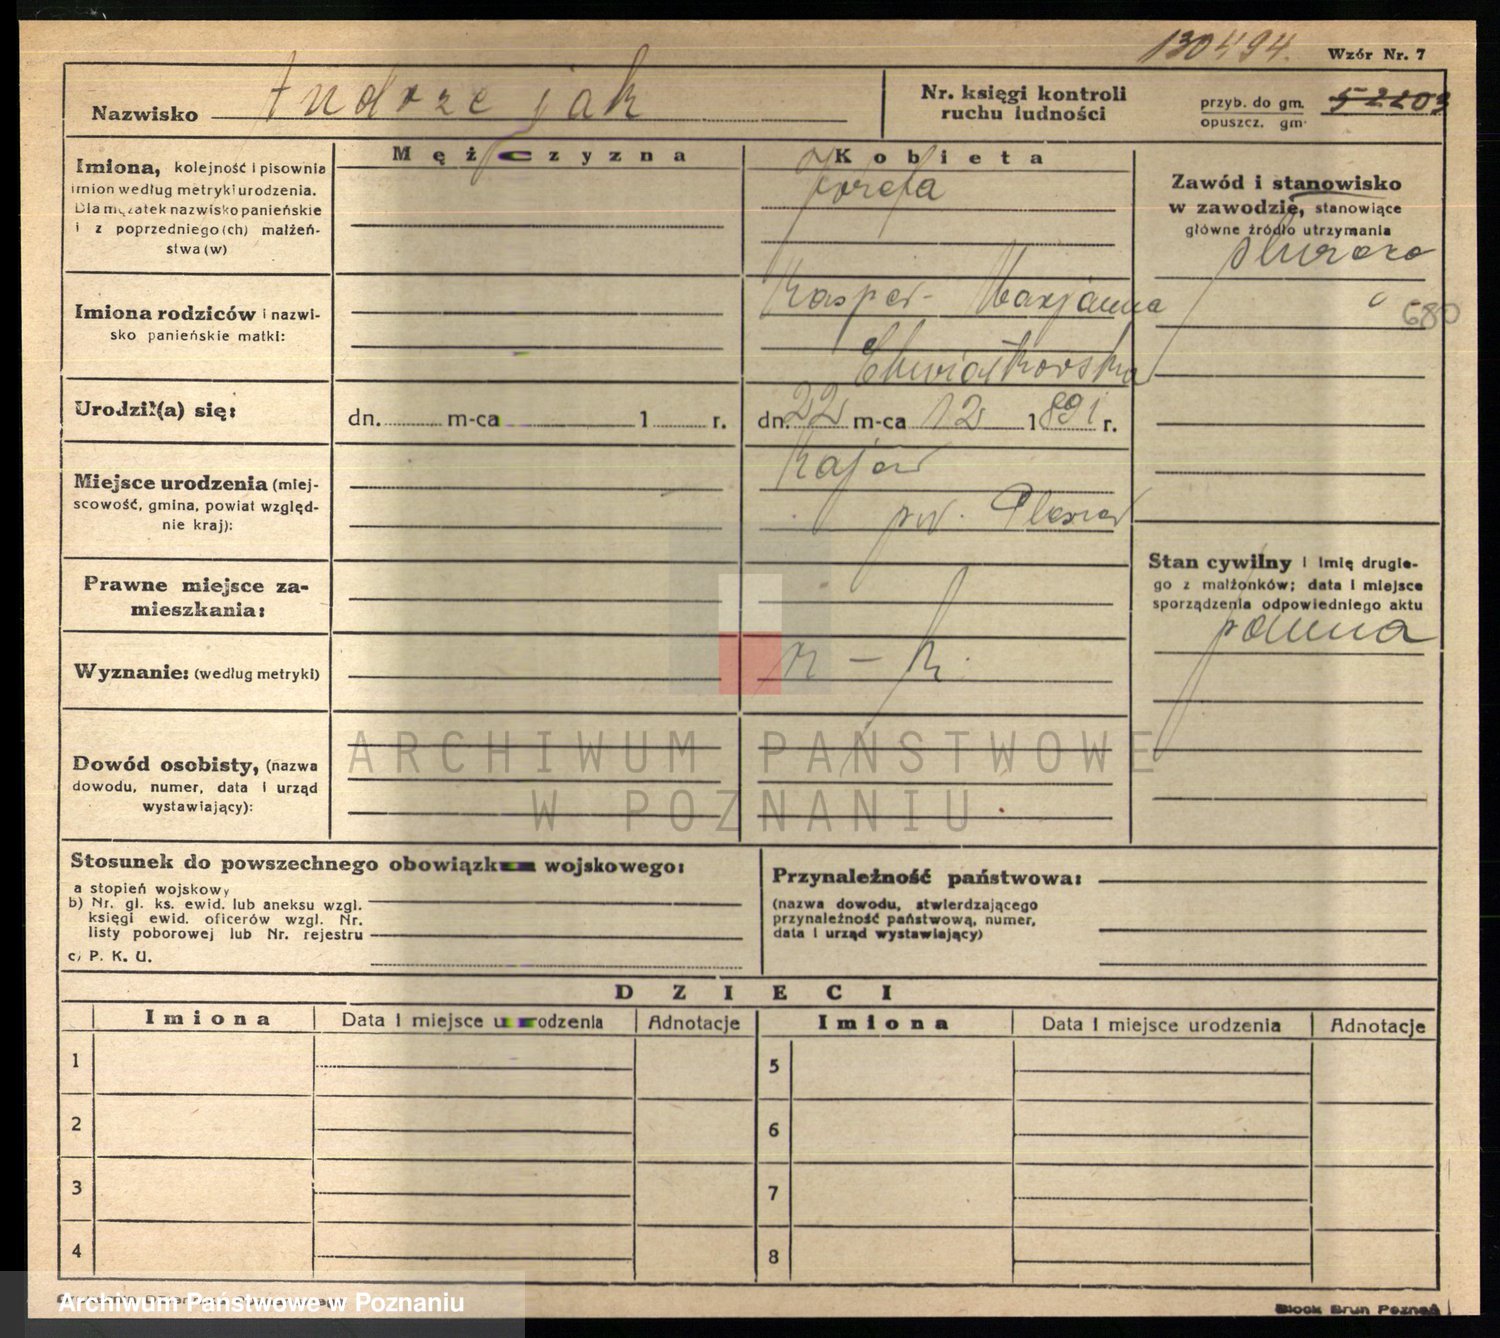 130494.
Wzór Nr. 7
Nazwisko Andrzejak
Nr. księgi kontroli
ruchu ludności
przyb. do gm. 52203
opuszcz. gm.
Imiona, kolejność i pisownia
imion według metryki urodzenia.
Dla mężatek nazwisko panieńskie
i z poprzedniego (ch) małżeń-
stwa (w)
Mężczyzna
Kobieta
Józefa
Zawód i stanowisko
w zawodzie, stanowiące
główne źródło utrzymania
680
Imiona rodziców i nazwi-
sko panieńskie matki:
Kasper - Marjanna
Chwiałkowska
Urodził(a) się:
dn. m-ca 1 r.
dn. 22 m-ca 12 1891 r.
Miejsce urodzenia (miej-
scowość, gmina, powiat względ-
nie kraj):
Kajew
pow. Pleszew
Stan cywilny i imię drugie-
go z małżonków; data i miejsce
sporządzenia odpowiedniego aktu
panna
Prawne miejsce za-
mieszkania:
Wyznanie: (według metryki)
r - k.
Dowód osobisty, (nazwa
dowodu, numer, data i urząd
wystawiający):
ARCHIWUM PAŃSTWOWE
W POZNANIU
Stosunek do powszechnego obowiązku wojskowego:
a stopień wojskowy
b) Nr. gł. ks. ewid. lub aneksu wzgl.
księgi ewid. oficerów wzgl. Nr.
listy poborowej lub Nr. rejestru
c) P. K. U.
Przynależność państwowa:
(nazwa dowodu, stwierdzającego
przynależność państwową, numer,
data i urząd wystawiający)
DZIECI
Imiona Data i miejsce urodzenia Adnotacje Imiona Data i miejsce urodzenia Adnotacje
1 5
2 6
3 7
4 8
Archiwum Państwowe w Poznaniu
Block Brun Poznań